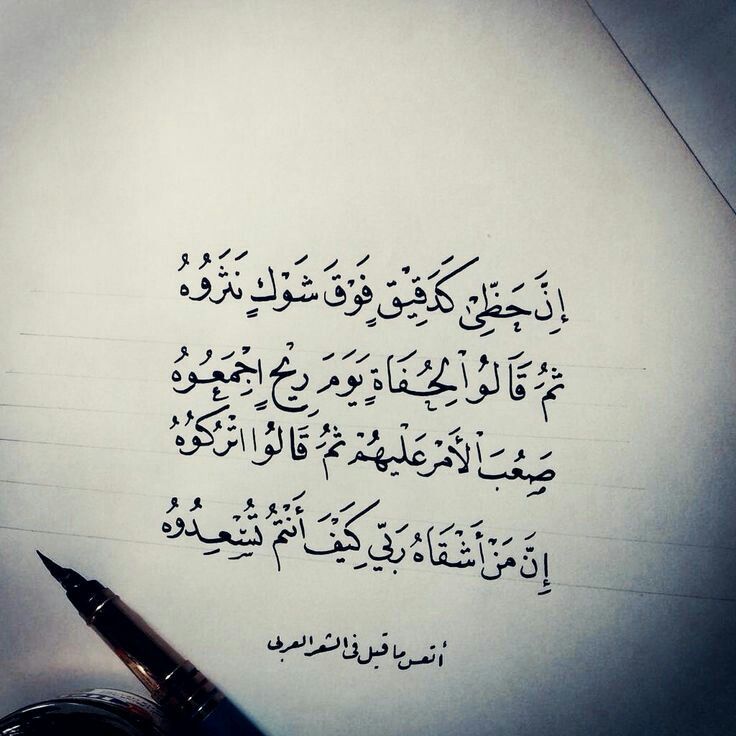 إِنَّ حَظِّيْ كَدَقِيْقٍ فَوْقَ شَوْكٍ نَثَرُوُهُ
ثُمَّ قَالُوُاْ لِحُفَاةٍ يَوَمَ رِيْحٍ اِجْمَعُوُهُ
صَعُبَ اْلأَمْر عَلْيهُمْ ثُمَّ قَالُوُا اتْرُكُوُهُ
إِنَّ مَنْ أَشْقَاهُ رَبّي كَيْفَ أَنْتُمُ تُسْعِدُوُهُ
أتعس ما قيل في الشعر العربي